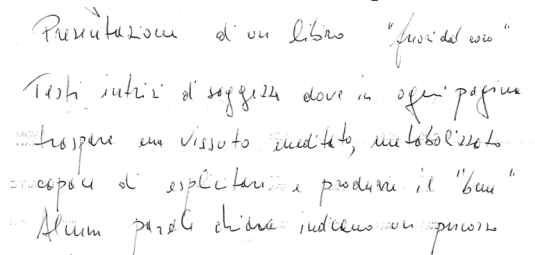 Presentazione di un libro "fuori dal coro"
Testi intrisi di saggezza dove in ogni pagina
traspare un vissuto meditato, metabolizzato
capace di esplicitare e produrre il "bene"
Alcune parole chiave indicano un percorso